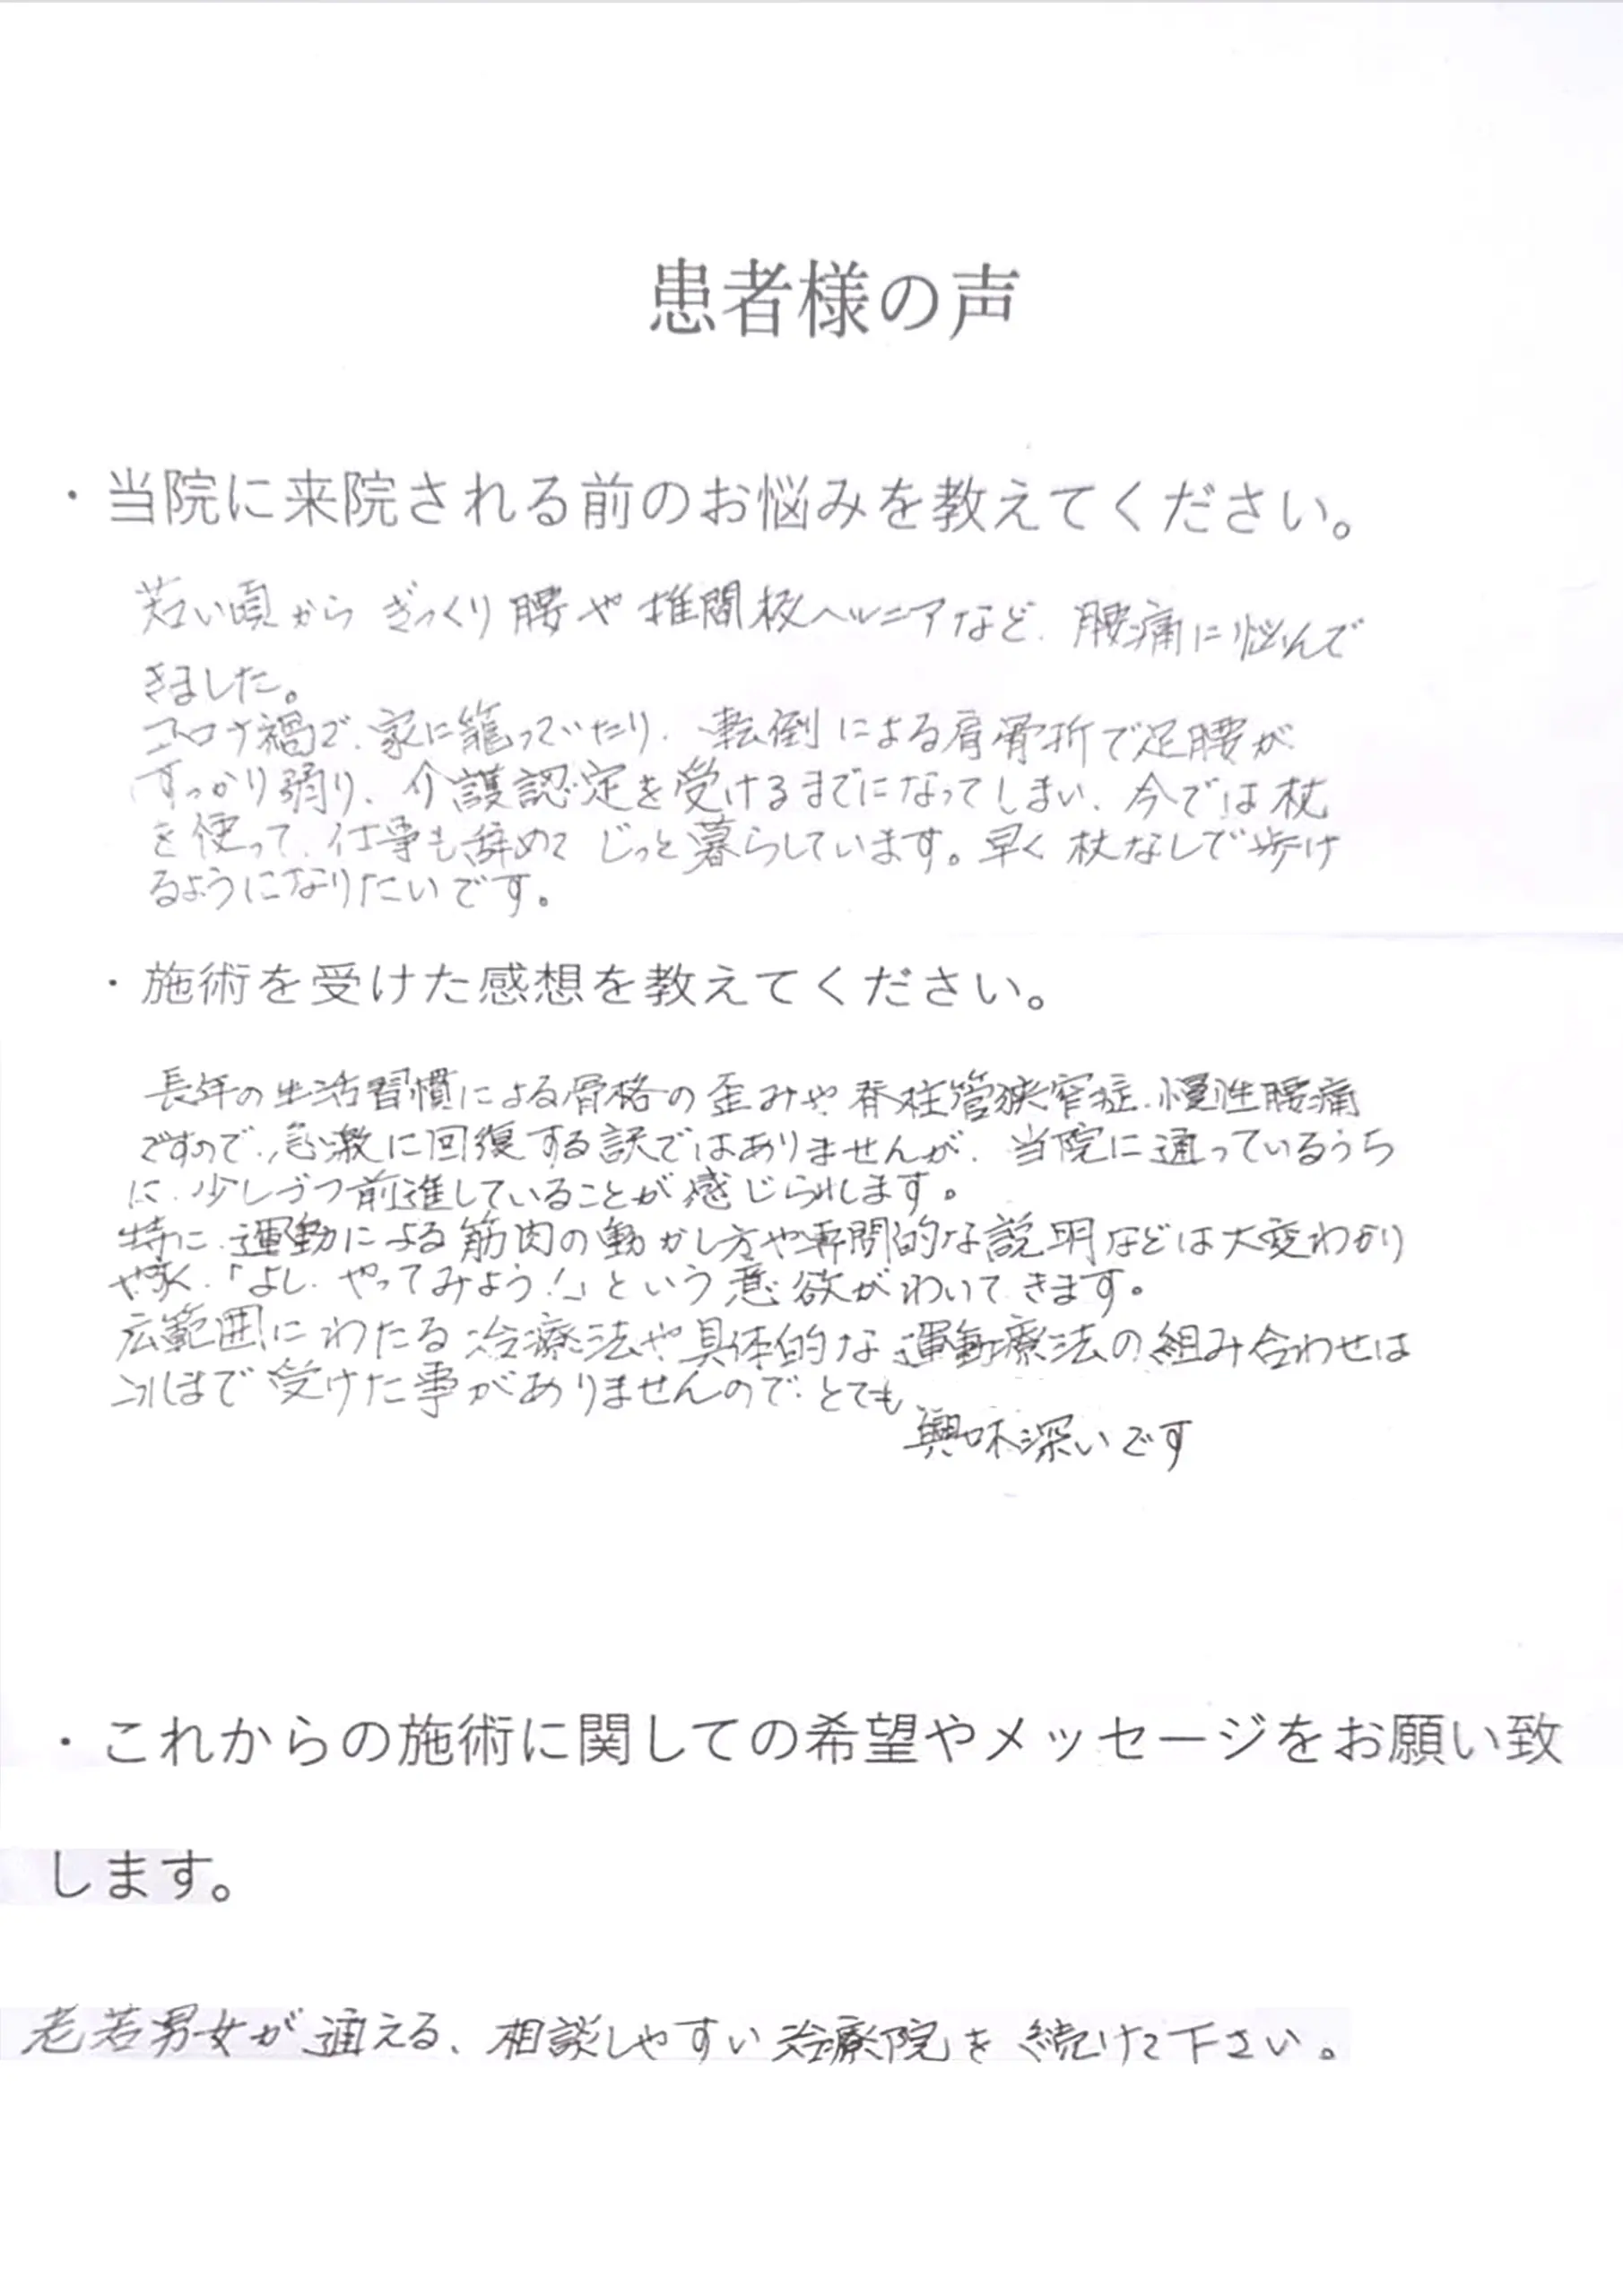 患者様の声
・当院に来院される前のお悩みを教えてください。
若い頃からぎっくり腰や椎間板ヘルニアなど、腰痛に悩んで
きました。
コロナ禍で、家に籠っていたり、転倒による肩骨折で足腰が
すっかり弱り、介護認定を受けるまでになってしまい、今では杖
を使って、仕事も辞めてじっと暮らしています。早く杖なしで歩け
るようになりたいです。
・施術を受けた感想を教えてください。
長年の生活習慣による骨格の歪みや脊柱管狭窄症、慢性腰痛
ですので、急激に回復する訳ではありませんが、当院に通っているうち
に、少しづつ前進していることが感じられます。
特に、運動による筋肉の動かし方や専門的な説明などは大変わかり
や承く、「よし、やってみよう!」という意欲がわいてきます。
広範囲にわたる治療法や具体的な運動療法の組み合わせは
これまで受けた事がありませんので、とても
興味深いです
・これからの施術に関しての希望やメッセージをお願い致
します。
老若男女が通える、相談しやすい治療院を続けて下さい。